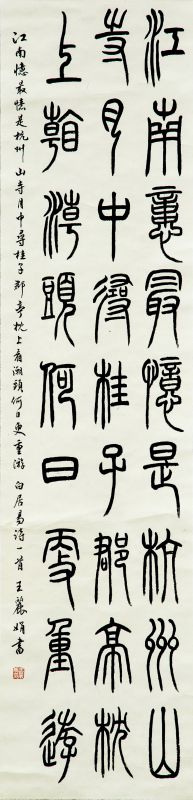 江南憶最憶是杭州山
寺月中尋桂子郡亭枕
上看潮頭何日更重遊
江南憶最憶是杭州山寺月中尋桂子郡亭枕上看潮頭何日更重游 白居易詩一首 王麗娟書